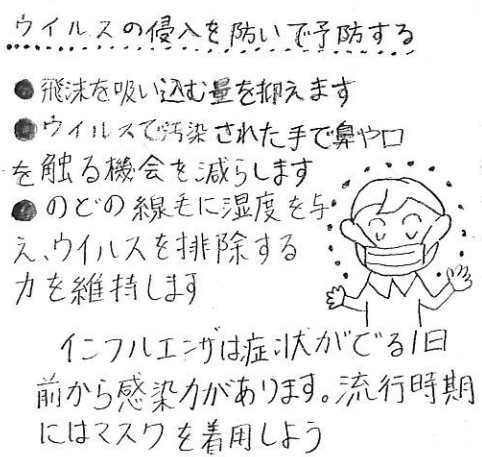 ウイルスの侵入を防いで予防する
●飛沫を吸い込む量を抑えます
●ウイルスで汚染された手で鼻や口
を触る機会を減らします
●のどの線毛に湿度を与
え、ウイルスを排除する
力を維持します
インフルエンザは症状がでる1日
前から感染力があります。流行時期
にはマスクを着用しよう